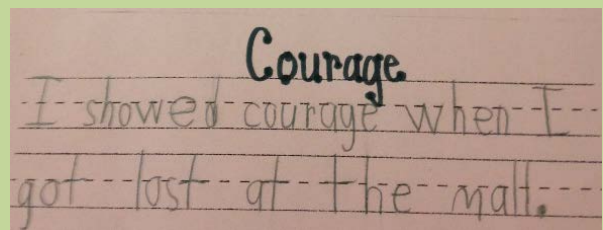 Courage
I showed courage when I
got lost at the mall.